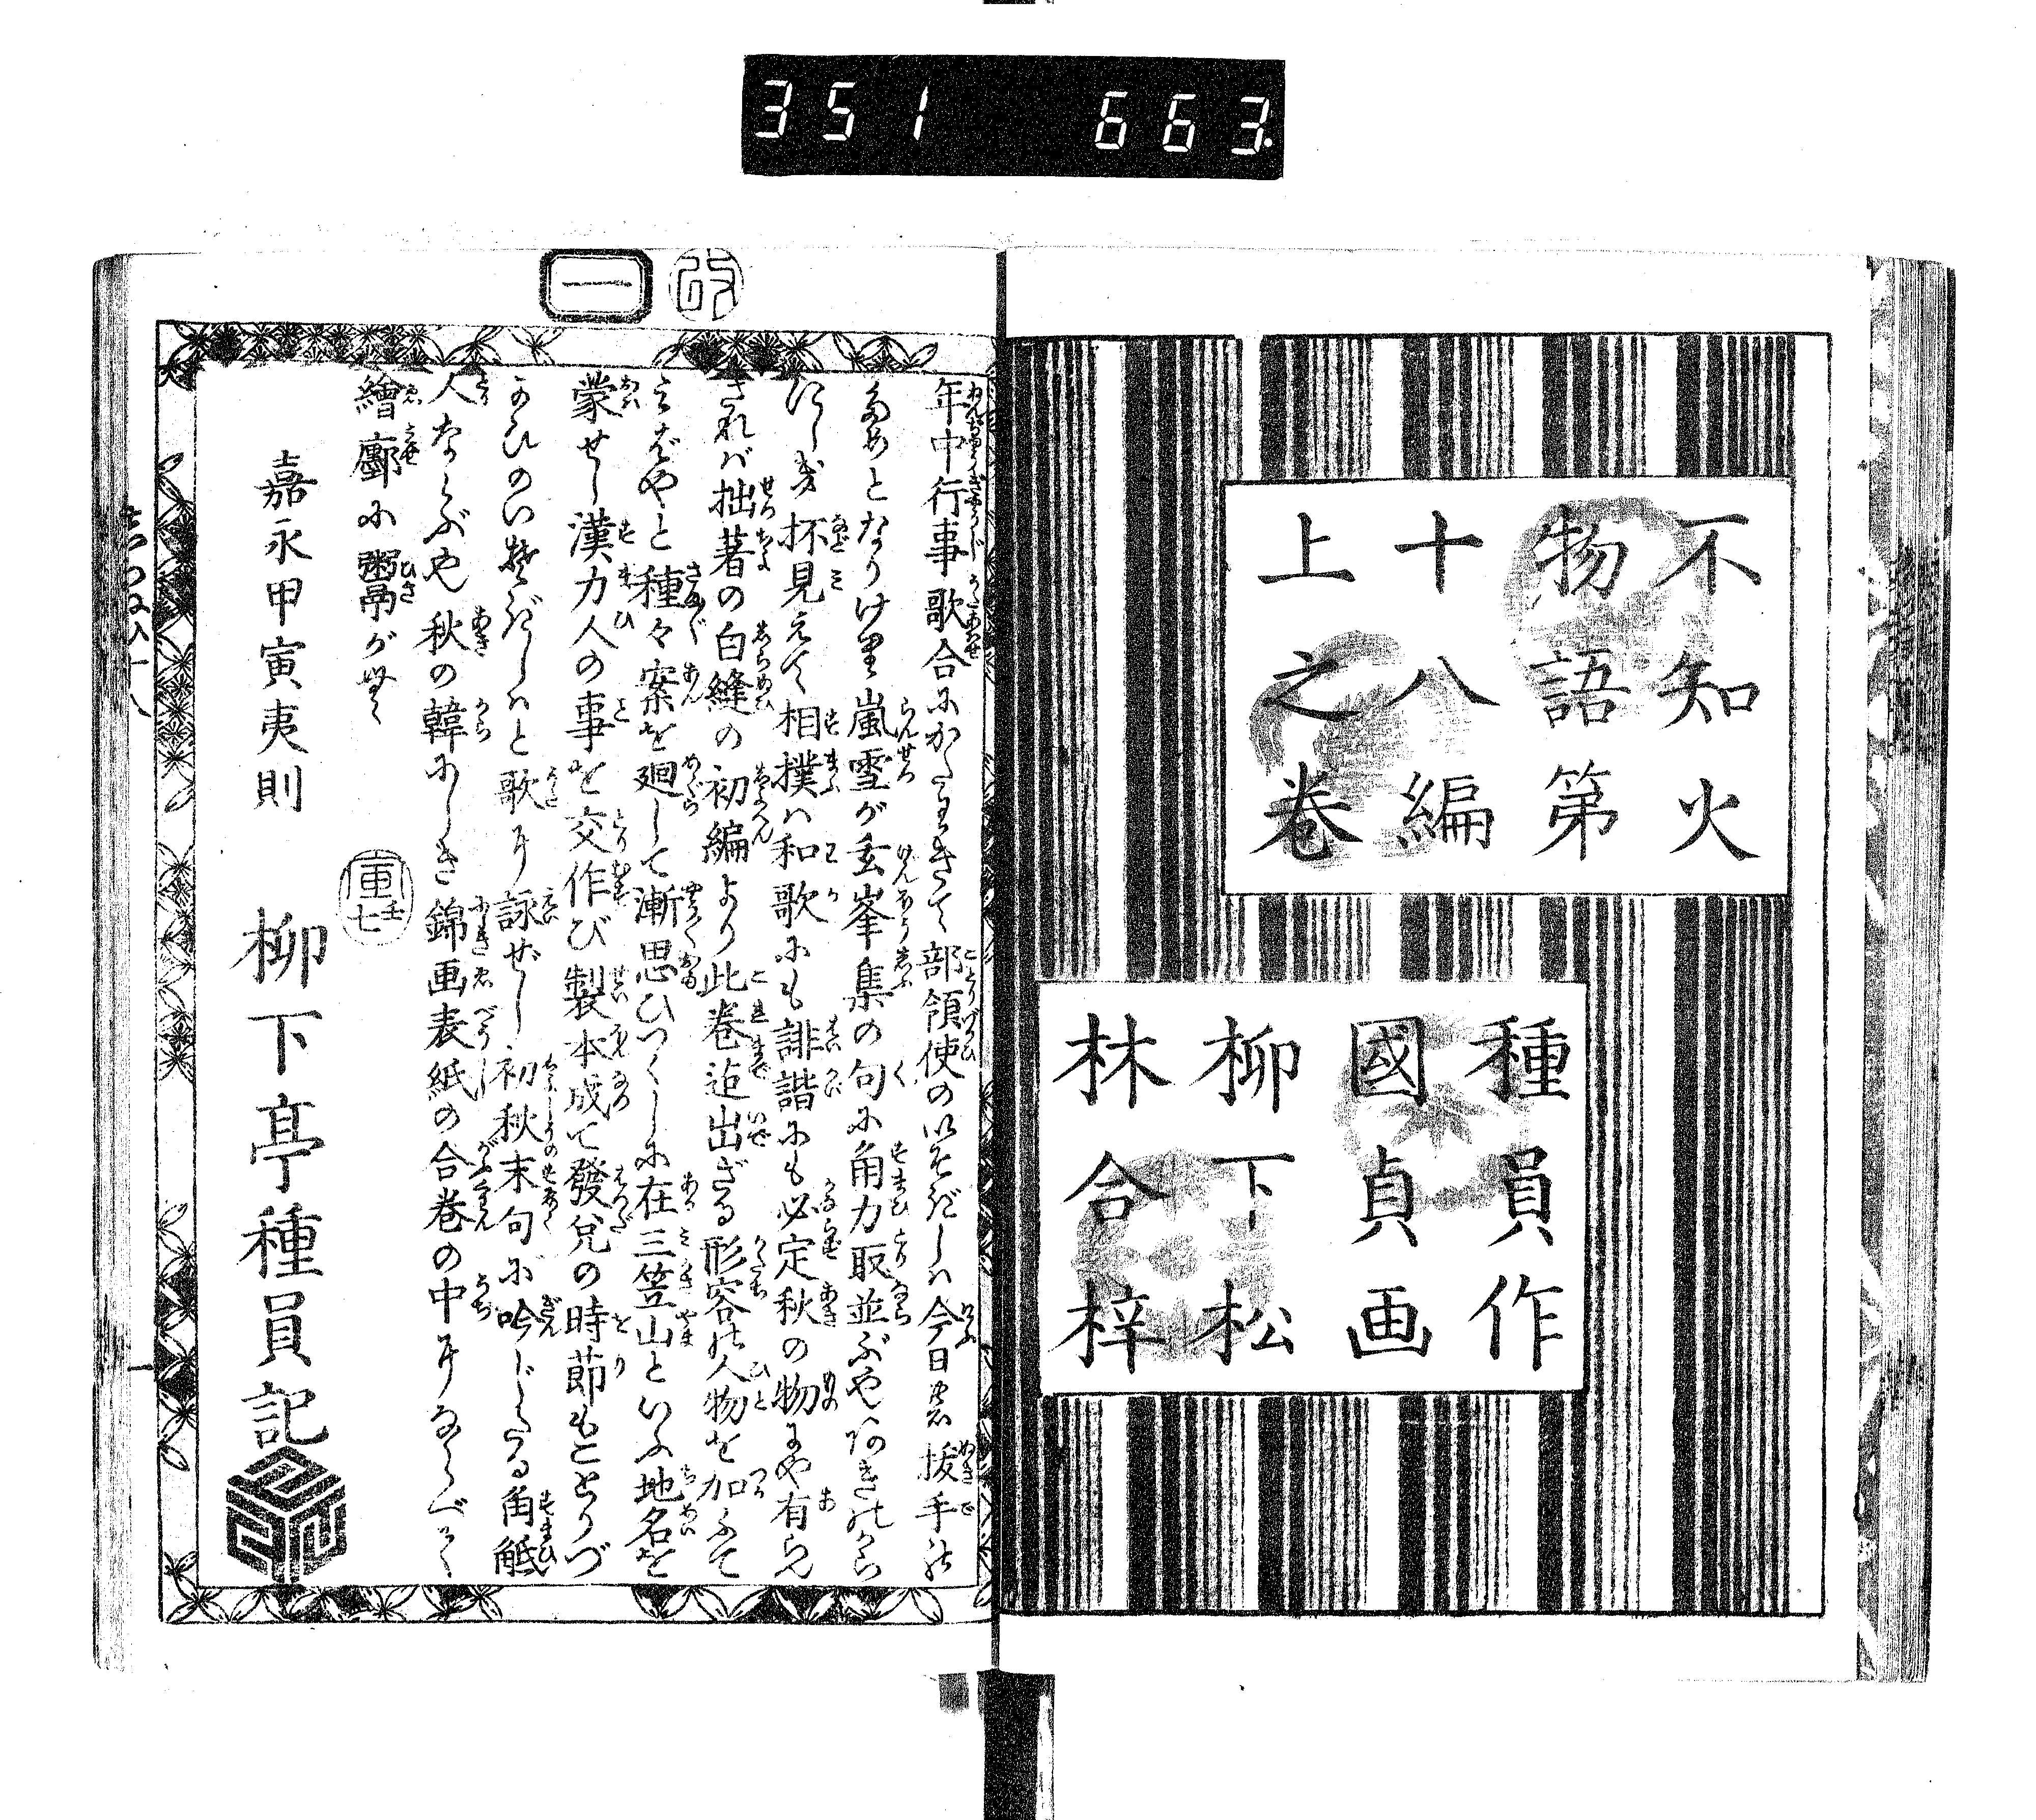 351 663
不知火
物語第
十八編
上之巻
種員作
國貞画
柳下松
林合梓
改
一
年中行事歌合にかたわきて部領使の いそぎしは今日 抜手の
ためとなりけり嵐雪が玄峯集の句に角力取並ぶや あきのから
にしき 抔見えて相撲は和歌にも誹諧にも必定秋の物にや有らん
されば拙著の白縫の初編より此巻迄出ざる形容の人物を加へて
見ばやと種々案を廻して漸思ひつくしに在三笠山といふ地名を
蒙せし漢力人の事を交作び製本成て發兌の時節もことりづ
かひのいそぎしはと歌に詠ぜし初秋末句に吟じたる角觝
人ならぶや秋の韓にしき錦画表紙の合巻の中にならべて
繪廓に粥

嘉永甲寅夷則
柳下亭種員記
寅七